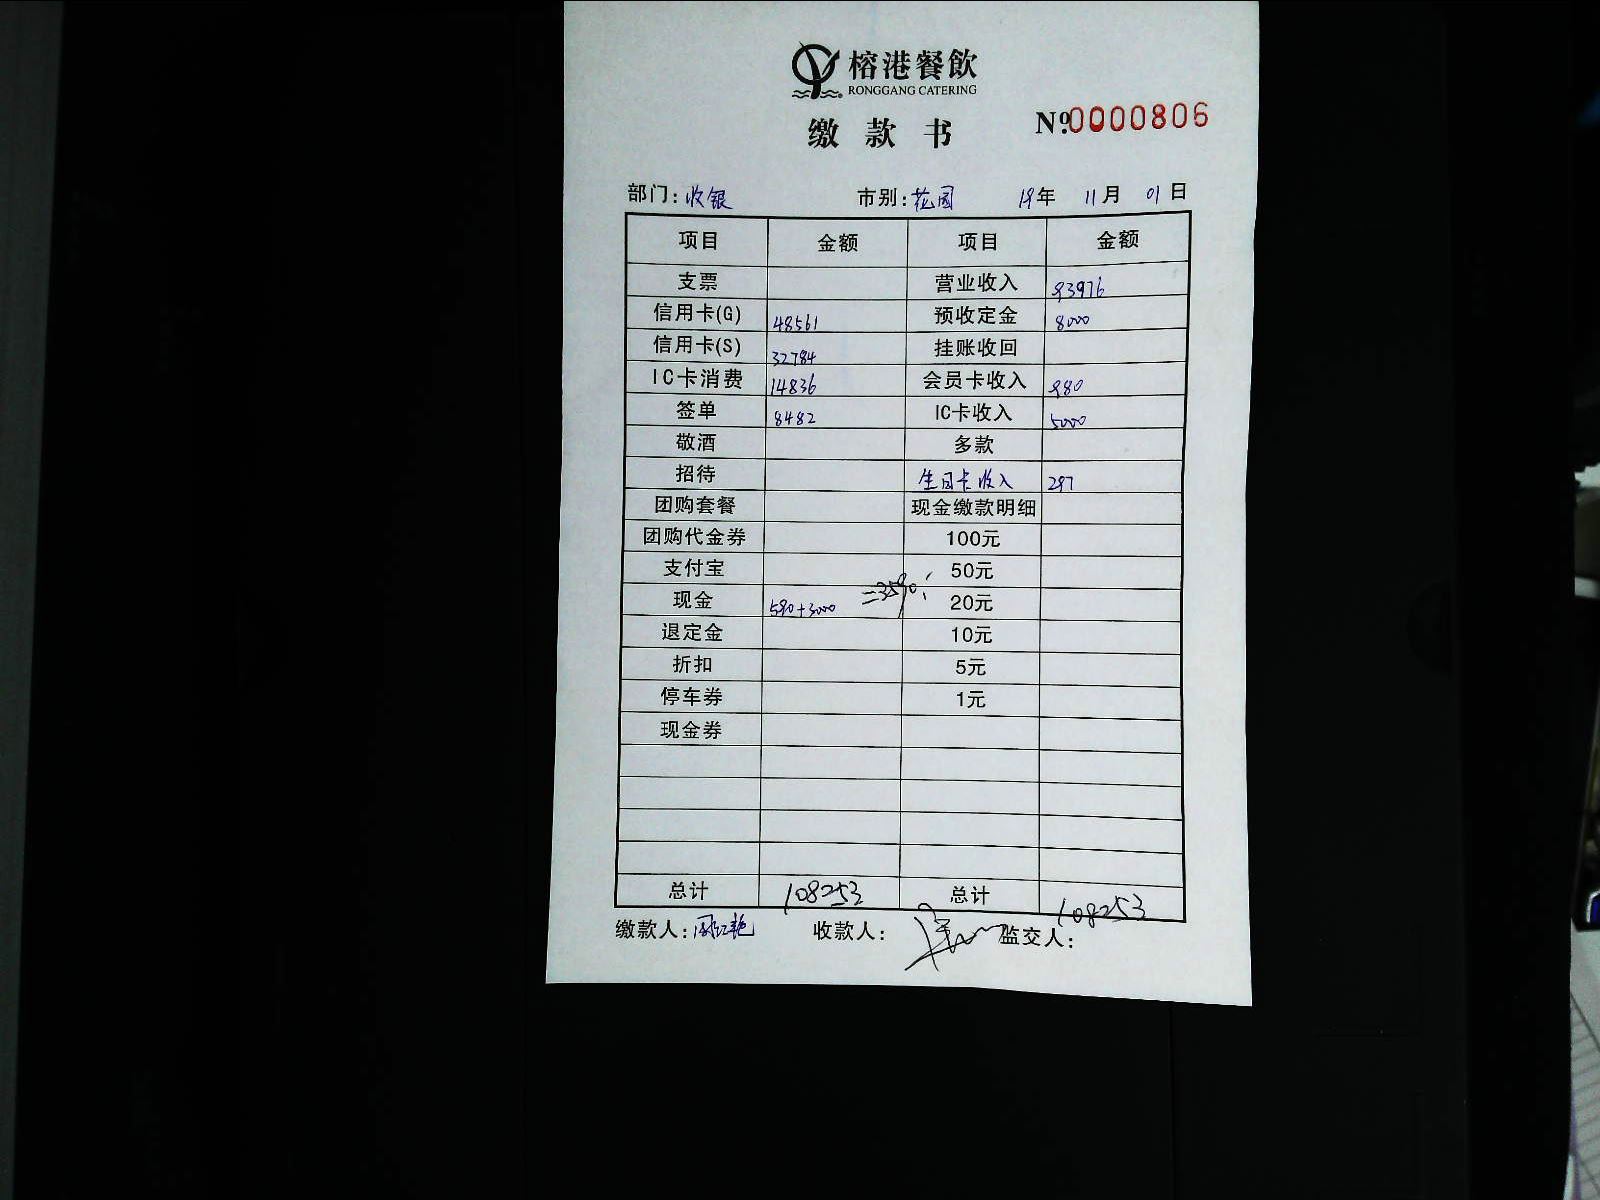 榕港餐飲
RONGGANG CATERING
缴款书 №0000806
部门:收银 市别:花园 19年 11月 01日
项目 金额 项目 金额
支票 营业收入 93976
信用卡(G) 48561 预收定金 8000
信用卡(S) 32784 挂账收回
IC卡消费 14836 会员卡收入 980
签单 8482 IC卡收入 5000
敬酒 多款
招待 生日卡收入 297
团购套餐 现金缴款明细
团购代金券 100元
支付宝 50元
现金 590+3000 =3590 20元
退定金 10元
折扣 5元
停车券 1元
现金券
总计 108253 总计 108253
缴款人: 收款人: 监交人: